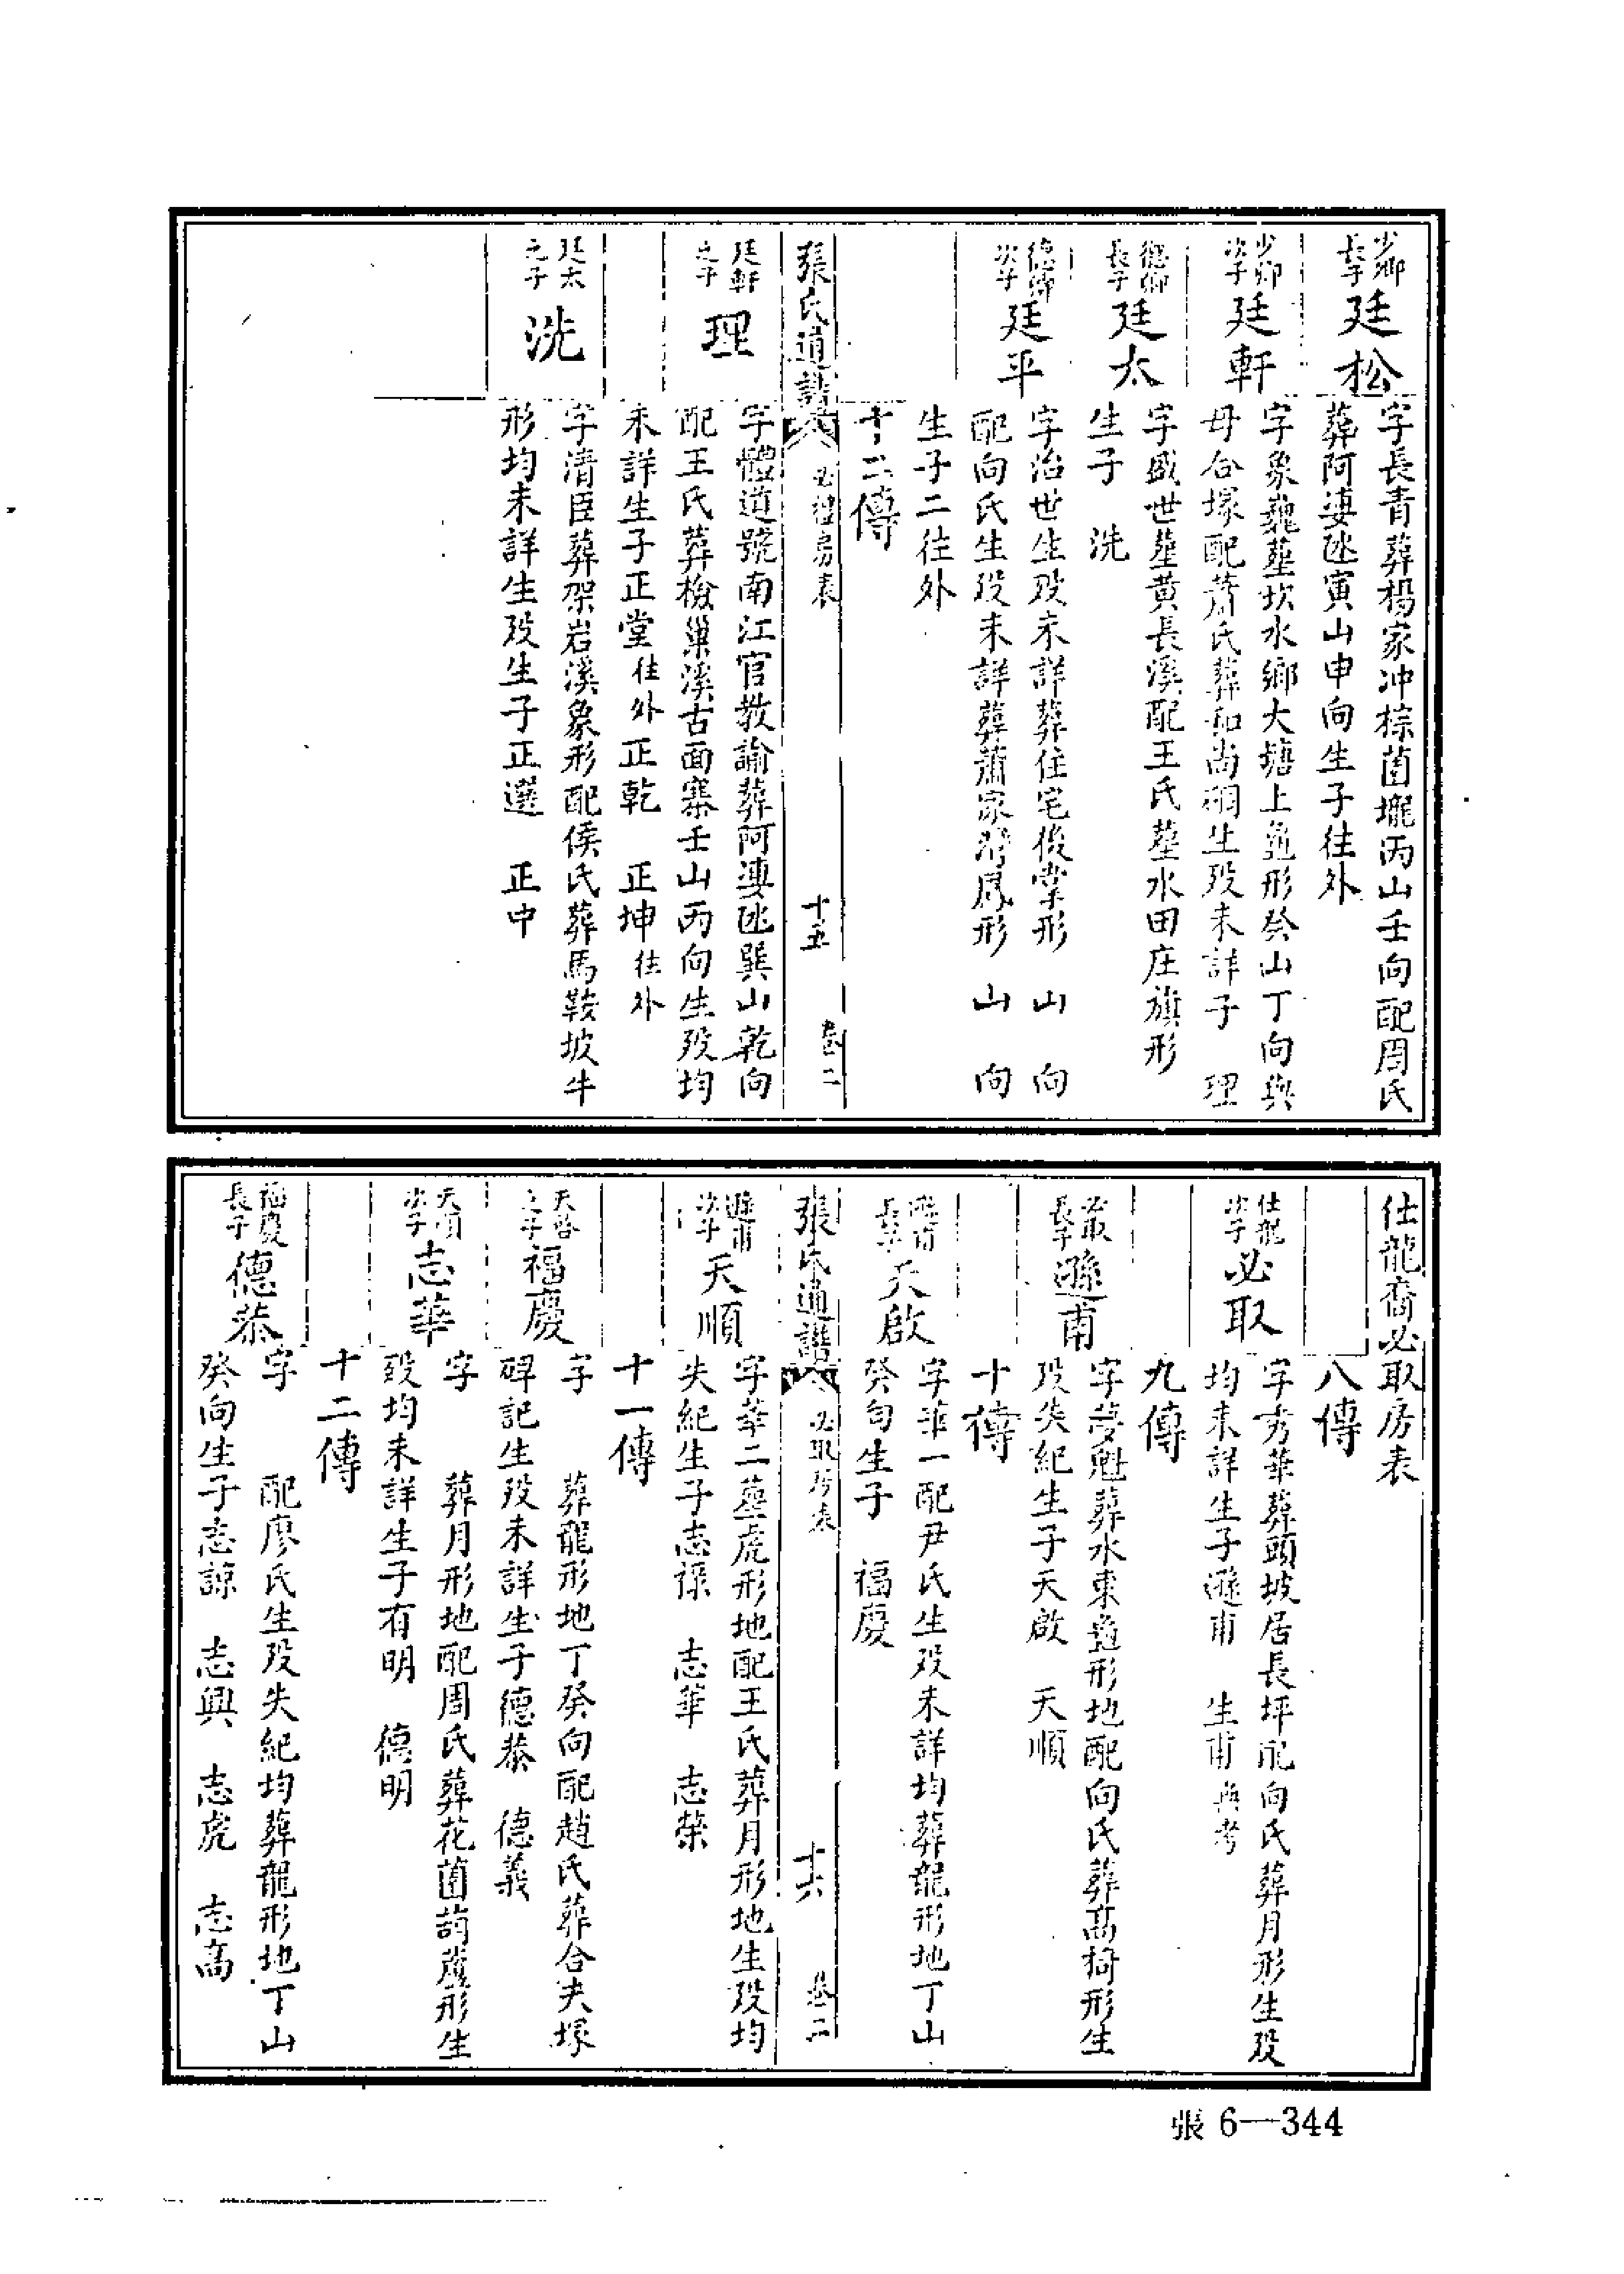 少卿長子 廷松 字長青葬楊家冲棕茵壠丙山壬向配周氏
葬阿婁氹寅山申向生子往外
少卿次子 廷軒 字象巍塟坎水鄉大塘上龜形癸山丁向與
母合塚配蕭氏葬和尚硐生殁未詳子 理
德卿長子 廷太 字盛世塟黄長溪配王氏塟水田庄旗形
生子 洗
德卿次子 廷平 字治世生殁未詳葬住宅後掌形 山 向
配向氏生殁未詳葬蕭家灣鳳形 山 向
生子二往外
十二傳
張氏通譜 必禮房表 十五 卷二
廷軒之子 理 字體道號南江官教諭葬阿婁氹巽山乾向
配王氏葬檢巢溪古面寨壬山丙向生殁均
未詳生子正堂往外 正乾 正坤往外
廷太之子 洗 字清臣葬架岩溪象形配侯氏葬馬鞍坡牛
形均未詳生殁生子正選 正中
仕龍裔必取房表
八傳
仕龍次子 必取 字秀華葬頭坡居長坪配向氏葬月形生殁
均未詳生子遜甫 生甫再考
九傳
必取長子 遜甫 字夢魁葬水東龜形地配向氏葬高椅形生
殁失紀生子天啟 天順
十傳
遜甫長子 天啟 字華一配尹氏生殁未詳均葬龍形地丁山
癸向生子 福慶
張氏通譜 必取房表 十六 卷二
遜甫次子 天順 字華二塟虎形地配王氏葬月形地生殁均
失紀生子志祿 志華 志榮
十一傳
天啓之子 福慶 字 葬龍形地丁癸向配趙氏葬合夫塚
碑記生殁未詳生子德恭 德義
天順次子 志華 字 葬月形地配周氏葬花茵葫蘆形生
殁均未詳生子有明 德明
十二傳
福慶長子 德恭 字 配廖氏生殁失紀均葬龍形地丁山
癸向生子志諒 志興 志虎 志高
張 6—344